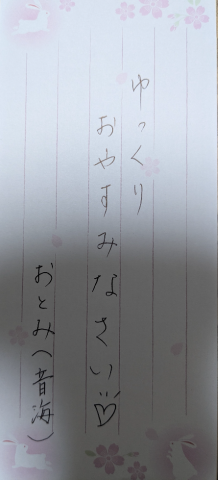 ゆっくり
おやすみなさい!!♡
おとみへ(音海)